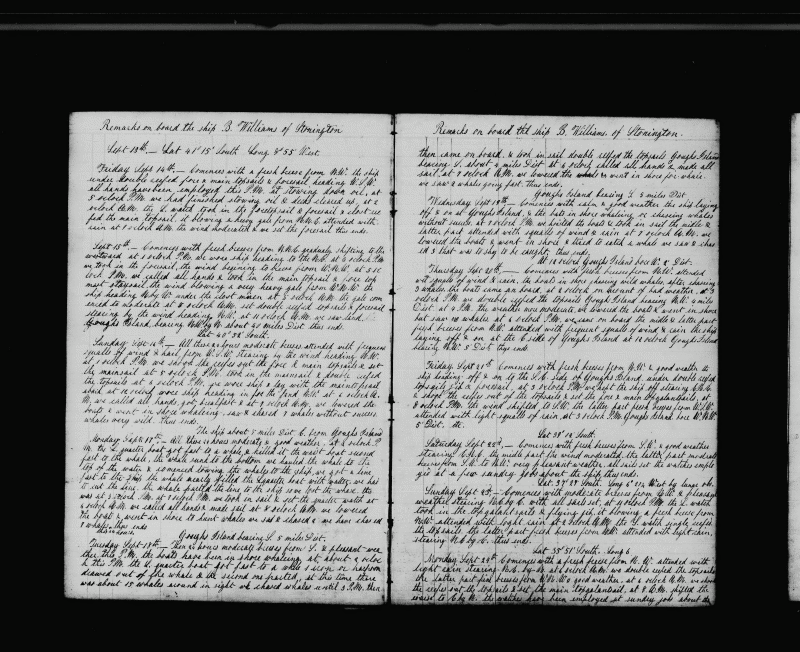 Remarks on board the ship B. Williams of Stonington
Sept 13th — Lat 41° 15' South Long 3° 55' West
Friday Sept 14th — Comences with a fresh breese from N.W. the ship
under double reefed fore & main topsails & foresail heading W.S.W.
all hands have been employed this P.M. at stowing down oil, at
5 oclock P.M. we had finished stowing oil & decks cleared up, at 2
oclock A.M. the L. watch took in the foretopsail & foresail & close ree
fed the main topsail, it blowing a heavy gale from N.N.E. attended with
rain at 8 oclock A.M. the wind moderated & we set the foresail thus ends
Sept 15th — Comences with fresh breeses from N.N.E. gradualy shifting to the
westward at 3 oclock P.M. we wore ship heading to the
we took in the foresail, the wind begining to breese from W.N.W. at 5 oc
lock P.M. we called all hands & took in the main topsail & close top
mast staysail the wind blowing a very heavy gale from W.N.W. the
ship heading N. by W. under the close mizen, at 5 oclock A.M. the gale com
enced to moderate at 8 oclock A.M. set double reefed topsails & foresail
stearing by the wind heading N.W. at 11 oclock A.M. we saw land
Goughs Island bearing N.W. by W. about 40 miles Dist. thus ends
Lat 40° 38' South.
Sunday Sept 16th — All these 24 hours moderate breeses attended with frequent
squalls of wind & hail from W.S.W. stearing in the wind heading N.W.
at 1 oclock P.M. we shook the reefs out the fore & main topsails & set
the mainsail at 5 oclock P.M. took in the mainsail & double reefed
the topsails at 6 oclock P.M. we wore ship & lay with the maintopsail
aback at 12 oclock wore ship heading in for the land N.W. at 5 oclock A.
M. we called all hands, got breakfast & at 7 oclock A.M. we lowered the
boats & went in shore whaleing, saw & chased 2 whales without success
whales very wild. thus ends.
The ship about 7 miles Dist E. from Goughs Island
Monday Sept 17th — All these 24 hours moderate & good weather, at 2 oclock P.
M. the L. quarter boat got fast to a whale & hailed it the waist boat second
fast to the whale, the whale sand to the bottom we hauled the whale to the
top of the water & comenced towing the whale to the ship, we got a line
fast to the ship the whale nearly filled the Quarter boat with water, we had
to cut the line, the whale parted the line to the ship & we lost the whale. this
was at 3 oclock P.M. at 7 oclock P.M. we took in sail & set the quarter watch at
4 oclock A.M. we called all hands & made sail at 8 oclock A.M. we lowered
the boats & went in shore to hunt whales we sad & chased & we have chased
2 whales thus ends
these 24 hours
Goughs Island bearing L. 5 miles Dist.
Tuesday Sept 18th — These 24 hours moderate breeses from L. & pleasant wea
ther this P.M. the boats have been in shore whaleing, at about 2 oclock
this P.M. the L. quarter boat got fast to a whale 1 iron or harpoon
drawed out of the whale & the second one parted, at this time there
was about 15 whales around in sight we chased whales until 5 P.M. then
Remarks on board the ship B. Williams. of Stonington.
then came on board, & took in sail double reefed the topsails Goughs Island
bearing L. about 4 miles Dist at 4 oclock called all hands & made all
sail, at 7 oclock A.M. we lowered the whale & went in shore for whale.
we saw 2 whales going fast. thus ends.
Goughs Island bearing L 5 miles Dist
Wednesday Sept 19th — Comences with calm & good weather the ship laying
off & on at Goughs Island, & the boats in shore whaleing or chaseing whales
without succes at 7 oclock P.M. we hoisted the boats & took in sail the middle &
latter part attended with squalls of wind & rain at 7 oclock A.M. we
lowered the boats & went in shore & tried to catch a whale we saw & cha
sed 3 that was to shy to be caught thus ends.
At 12 oclock Goughs Island bore W. 5 Dist.
Thursday Sept 20th — Comences with fresh breeses from N.W. attended
with squalls of wind & rain, the boats in shore chaseing wild whales after chaseing
2 whales the boats came on board at 2 oclock on account of bad weather. at 3
oclock P.M. we double reefed the topsails Gough Island bearing N.W. 4 mile
Dist. at 4 P.M. the weather was moderate we lowered the boats & went in shore
but saw no whales at 6 oclock P.M. we came on board the middle & latter part
fresh breeses from N.W. attended with frequent squalls of wind & rain the ship
laying off & on at the E side of Goughs Island at 12 oclock Goughs Island
bearing N.W. 5 Dist thus ends
Friday Sept 21st Comences with fresh breeses from N.W. & good weather the
ship heading off & on at the S.E. side of Goughs Island, under double reefed
topsails jib & foresail, at 3 oclock P.M. we kept the ship off stearing E.N.E.
& shook the reefs out of the topsails & set the fore & main topgalantsails, at
8 oclock P.M. the wind shifted to S.W. the latter part fresh breeses from W.S.W.
attended with light squalls of rain at 3 oclock P.M. Goughs Island bore W.N.W.
5 Dist. &c.
Lat 38° 18' South.
Saturday Sept 22nd — Comences with fresh breeses from S.W. & good weather
stearing E.N.E. the midle part the wind moderated, the latter part moderate
breese from S.W. to N.W. very pleasant weather, all sails set the watches emplo
yed at a few sunday jobs about the ship thus ends.
Lat 37° 28' South Long 6° 22' West by lunar obs.
Sunday Sept 23. — Comences with moderate breeses from N.W. & pleasant
weather stearing N.E. by E. with all sails set, at 10 oclock P.M. the L. watch
took in the topgalantsails & flying jib it blowing a fresh breese from
N.W. attended with light rain at 2 oclock A.M. the L. watch single reefed
the topsails the latter part fresh breeses from N.W. attended with light rain,
stearing N.E. by E. thus ends.
Lat 35° 51' South. Long 6
Monday Sept 24th Comences with a fresh breese from N.W. attended with
light rain stearing N.E. by N. at 4 oclock A.M. we double reefed the topsails
the latter part fresh breeses from W.N.W. & good weather, at 6 oclock A.M. we shook
the reefs out the topsails & set the main topgalantsail, at 8 A.M. shifted the
course to E. by N. the watches have been employed at sunday jobs about de